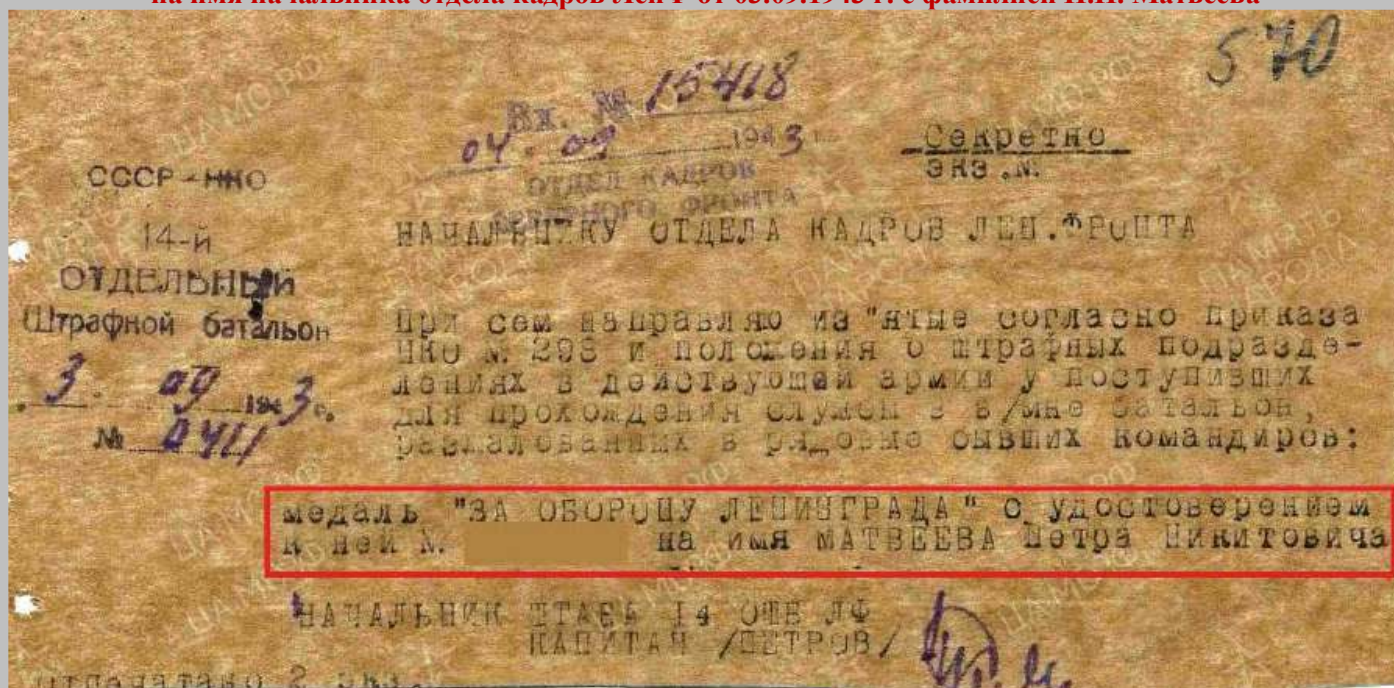 на имя начальника отдела кадров ЛенФ от 03.09.1943 г. с фамилией П.Н. Матвеева
570
Вх. № 15418
04.09 1943
ОТДЕЛ КАДРОВ
ФРОНТА
Секретно
экз.№.
СССР-НКО
14-й
ОТДЕЛЬНЫЙ
Штрафной батальон
3. 09 1943 г.
№ 0411
НАЧАЛЬНИКУ ОТДЕЛА КАДРОВ ЛЕН.ФРОНТА
При сем направляю из"ятые согласно приказа
НКО №.298 и положения о штрафных подразде-
лениях в действующей армии у поступивших
для прохождения службы в в/мне батальон,
разжалованных в рядовые бывших командиров:
медаль "ЗА ОБОРОНУ ЛЕНИНГРАДА" с удостоверением
к ней №. на имя МАТВЕЕВА Петра Никитовича
НАЧАЛЬНИК ШТАБА 14 ОШБ ЛФ
КАПИТАН /ПЕТРОВ/
Отпечатано 2 экз.